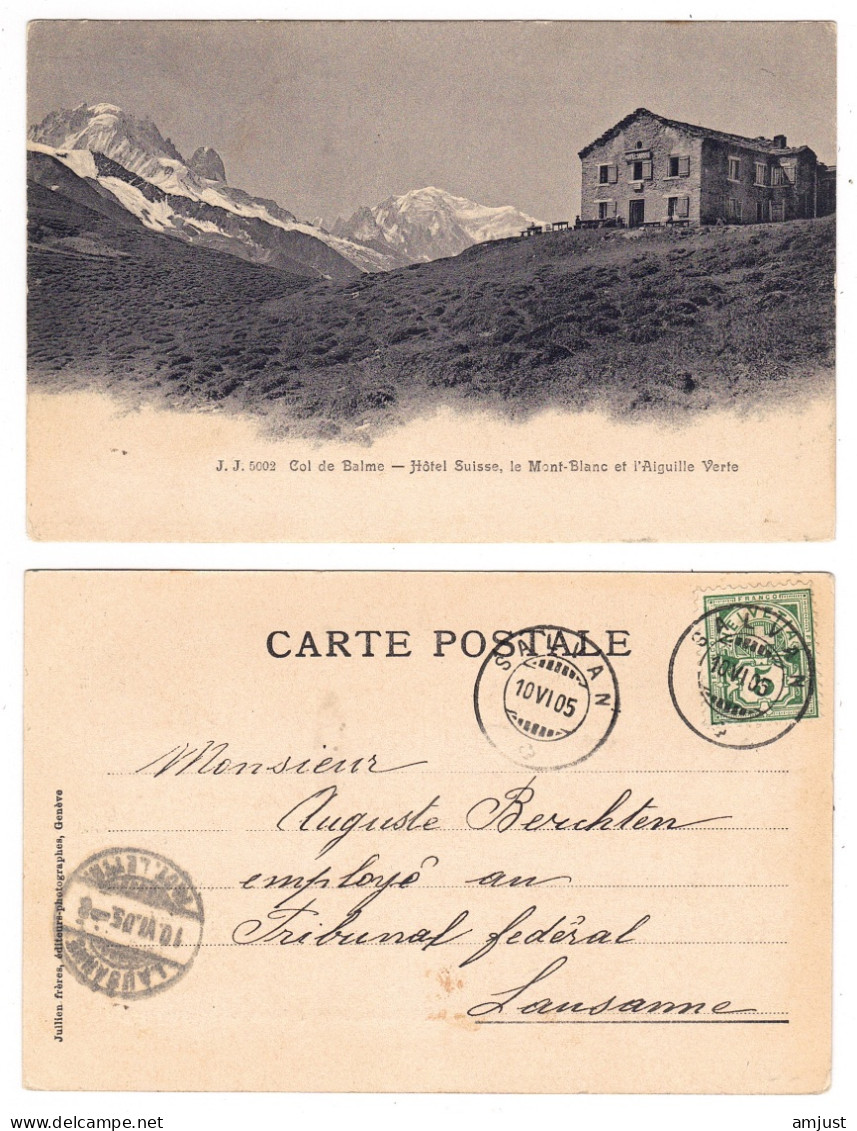 J. J. 5002 Col de Balme — Hôtel Suisse, le Mont-Blanc et l'Aiguille Verte
CARTE POSTALE
SALVAN
10 VI 05
FRANCO
HELVETIA
5
SALVAN
10 VI 05
Monsieur
Auguste Berchten
employé au
Tribunal fédéral
Lausanne
LAUSANNE
10.VI.05.-8
Jullien frères, éditeurs-photographes, Genève
amjust